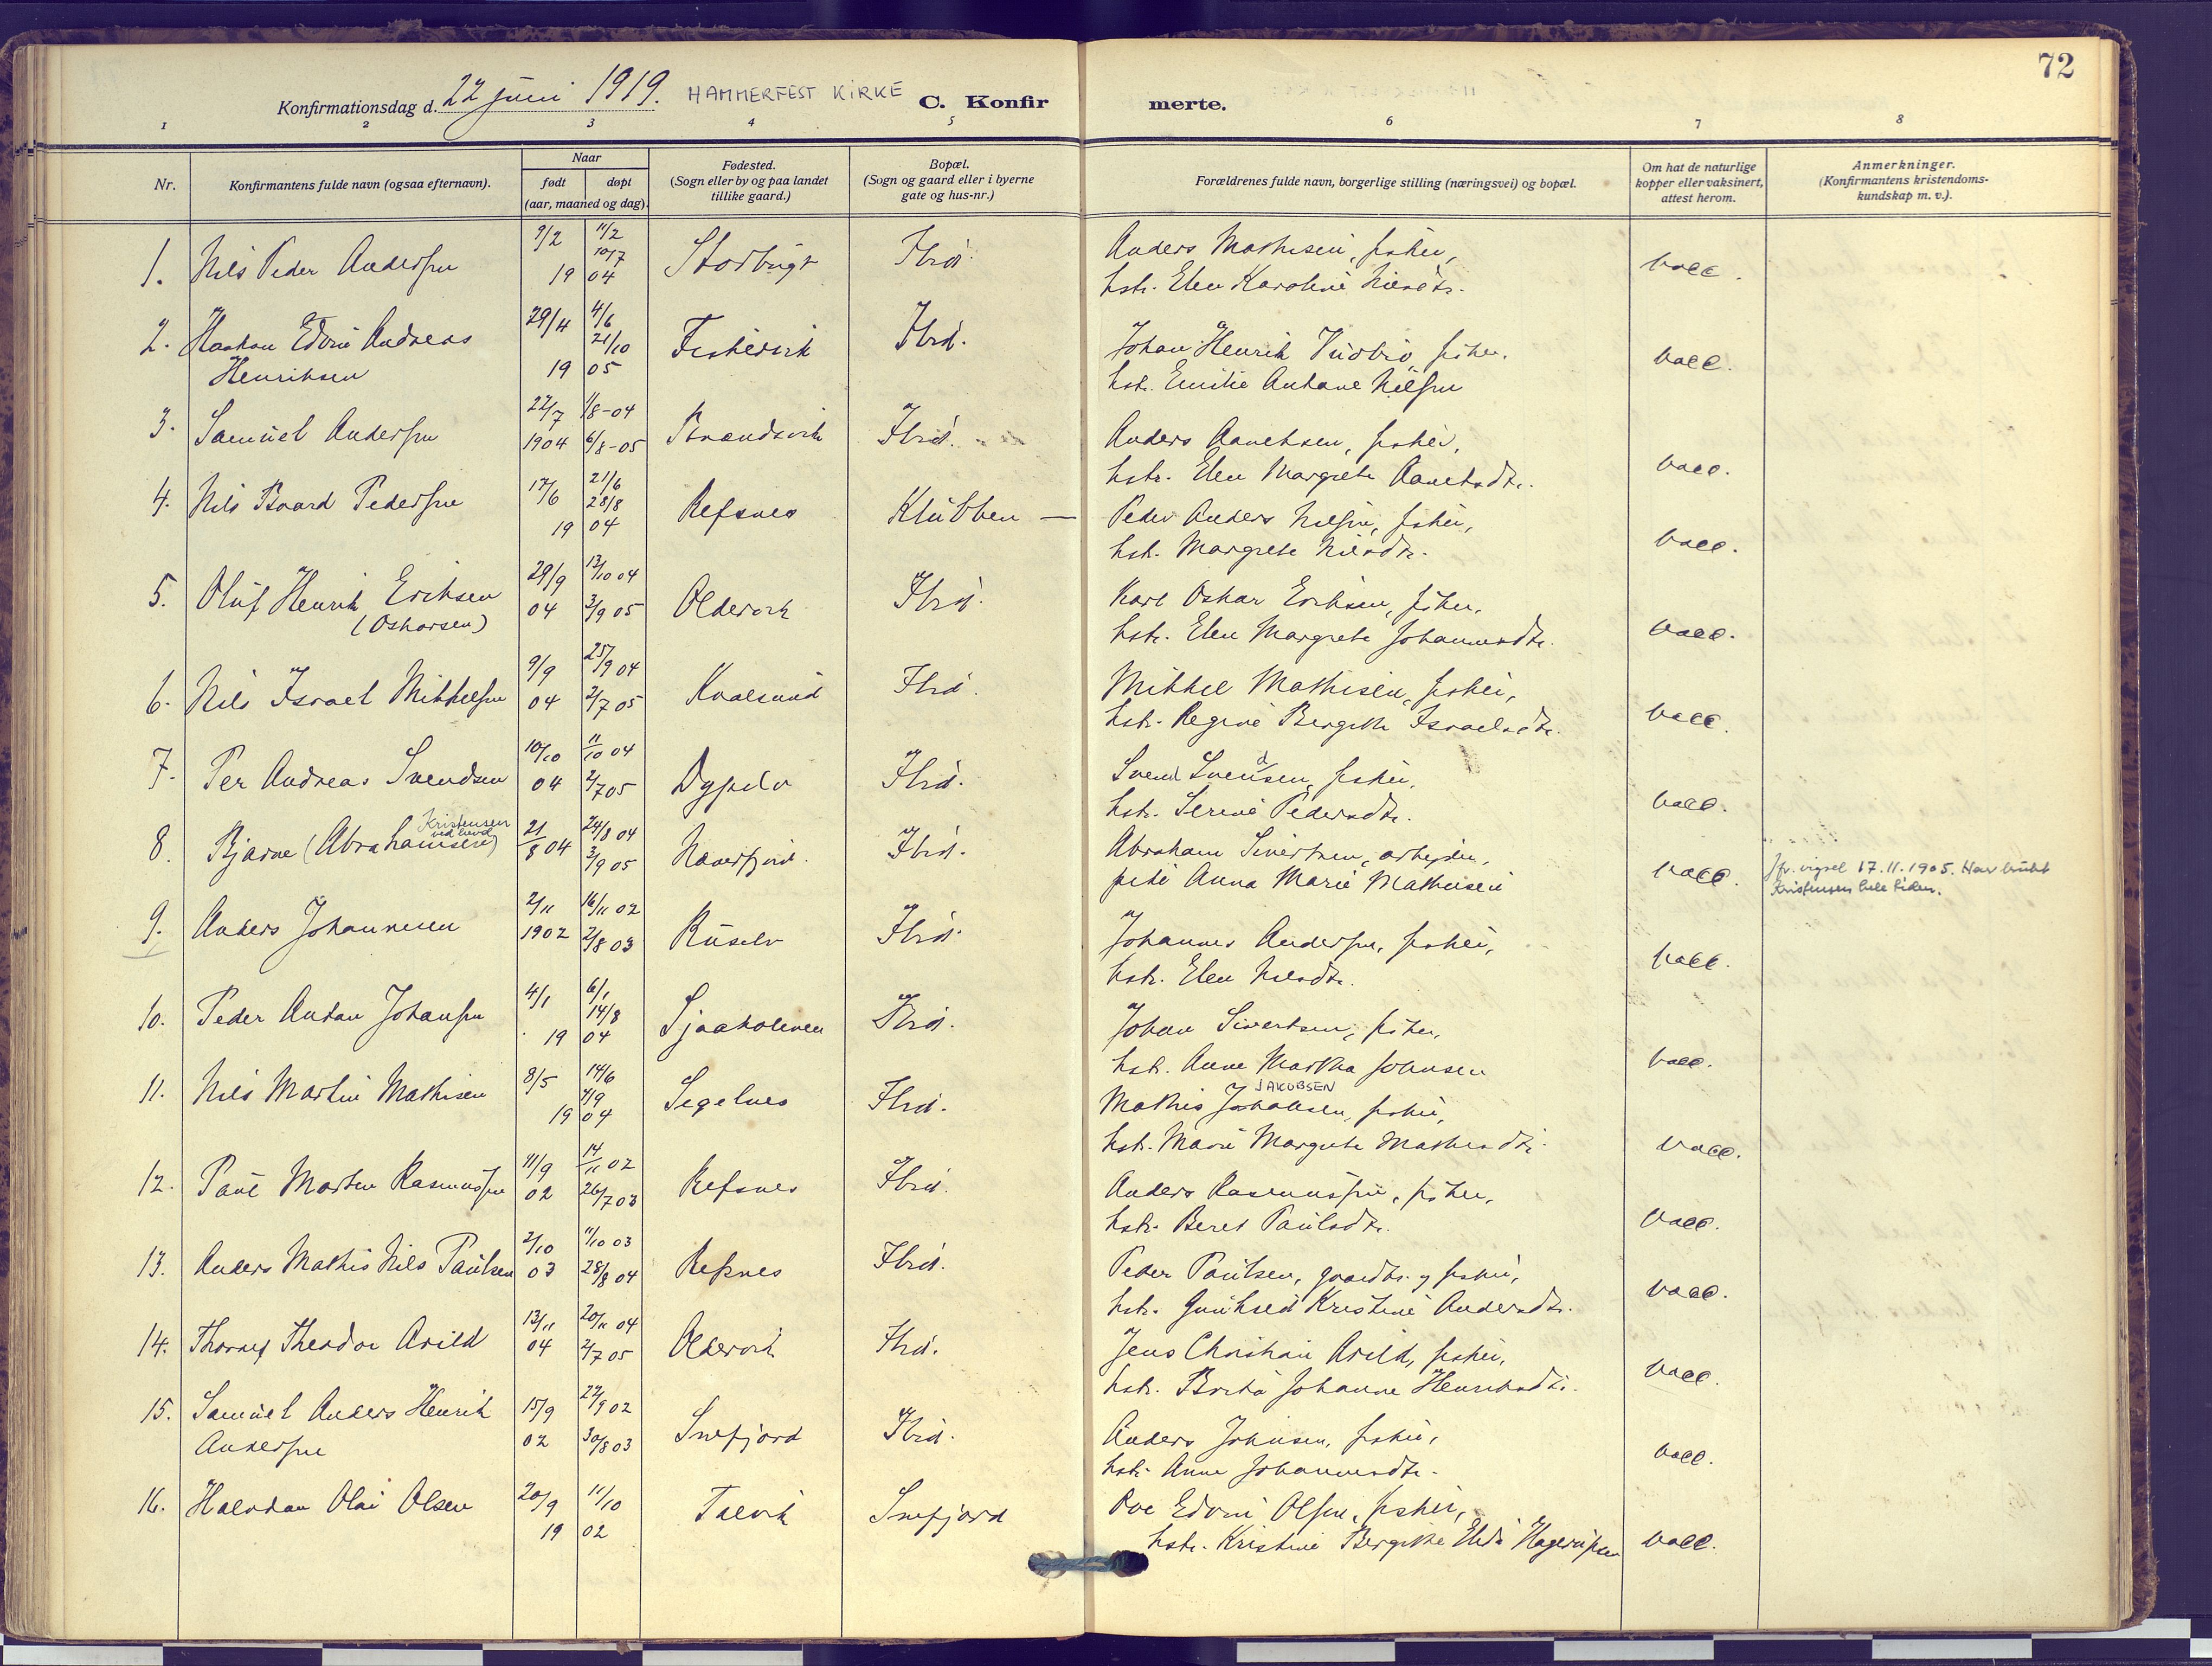 72
Konfirmationsdag d. 22 juni 1919. HAMMERFEST KIRKE C. Konfirmerte.
1 2 3 4 5 6 7 8
Nr.
Konfirmantens fulde navn (ogsaa efternavn).
Naar
født døpt
(aar, maaned og dag).
Fødested.
(Sogn eller by og paa landet
tillike gaard.)
Bopæl.
(Sogn og gaard eller i byerne
gate og hus-nr.)
Forældrenes fulde navn, borgerlige stilling (næringsvei) og bopæl.
Om hat de naturlige
kopper eller vaksinert,
attest herom.
Anmerkninger.
(Konfirmantens kristendoms-
kundskap m. v.).
1. Nils Peder Andersen 9/2 11/2 10/7 19 04 Storbugt Ibid. Anders Mathisen, fisker, vacc.
hstr. Elen Karoline Nilsdtr.
2. Haakon Edvin Andreas 29/4 4/6 21/10 Ibid. Johan Henrik fisker. vacc.
Henriksen 19 05 hstr. Emilie Antone Nilsen
3. Samuel Andersen 22/7 1904 1/8-04 6/8-05 Ibid. Anders fisker, vacc.
hstr. Elen Margrete
4. Nils Baard Pedersen 17/6 21/6 28/8 19 04 Refsnes Klubben — Peder Anders Nilsen, fisker, vacc.
hstr. Margrete Nilsdtr.
5. Oluf Henrik Eriksen 29/9 04 13/10 04 3/9 05 Oldervik Ibid. Karl Oskar Eriksen, fisker. vacc.
(Oskarsen) hstr. Elen Margrete Johannesdtr.
6. Nils Israel Mikkelsen 9/9 04 25/9 04 2/7 05 Kvalsund Ibid. Mikkel Mathisen, fisker, vacc.
hstr. Regine Bergitte Israelsdtr.
7. Per Andreas Svendsen 10/10 04 11/10 04 2/7 05 Dypelv Ibid. Svend Svendsen, fisker, vacc.
hstr. Serine Pedersdtr.
8. Bjarne (Abrahamsen) Kristensen ved levd 21/8 04 24/8 04 3/9 05 Ibid. Abraham Sivertsen, arbeider, vacc. Jfr. vigsel 17.11.1905. Har brukt
pike Anna Marie Mathisen Kristensen hele tiden.
9. Anders Johannesen 2/11 1902 16/11 02 2/8 03 Ruselv Ibid. Johannes Andersen, fisker, vacc.
hstr. Elen Nilsdtr.
10. Peder Anton Johansen 4/1 6/1 14/8 19 04 Sjaaholmen Ibid. Johan Sivertsen, fisker, vacc.
hstr. Anne Martha Johnsen
11. Nils Martin Mathisen 8/5 14/6 4/9 19 04 Segelnes Ibid. Mathis Johansen JAKOBSEN, fisker, vacc.
hstr. Marie Margrete Mathisdtr.
12. Paul Morten Rasmussen 11/9 02 14/11 02 26/7 03 Refsnes Ibid. Anders Rasmussen, fisker, vacc.
hstr. Beret Paulsdtr.
13. Anders Mathis Nils Paulsen 2/10 03 11/10 03 28/8 04 Refsnes Ibid. Peder Paulsen, gaardbr. og fisker, vacc.
hstr. Gunhild Kristine Andersdtr.
14. Thorleif Theodor Arild 13/11 04 20/11 04 2/7 05 Oldervik Ibid. Jens Christian Arild, fisker, vacc.
hstr. Johanne Henriksdtr.
15. Samuel Anders Henrik 15/9 02 22/9 02 30/8 03 Snefjord Ibid. Anders Johnsen, fisker, vacc.
Andersen hstr. Anne Johannesdtr.
16. Halvdan Olai Olsen 20/9 11/10 19 02 Talvik Snefjord Ove Edvin Olsen, fisker, vacc.
hstr. Kristine Bergitte Elida Hagerupsen